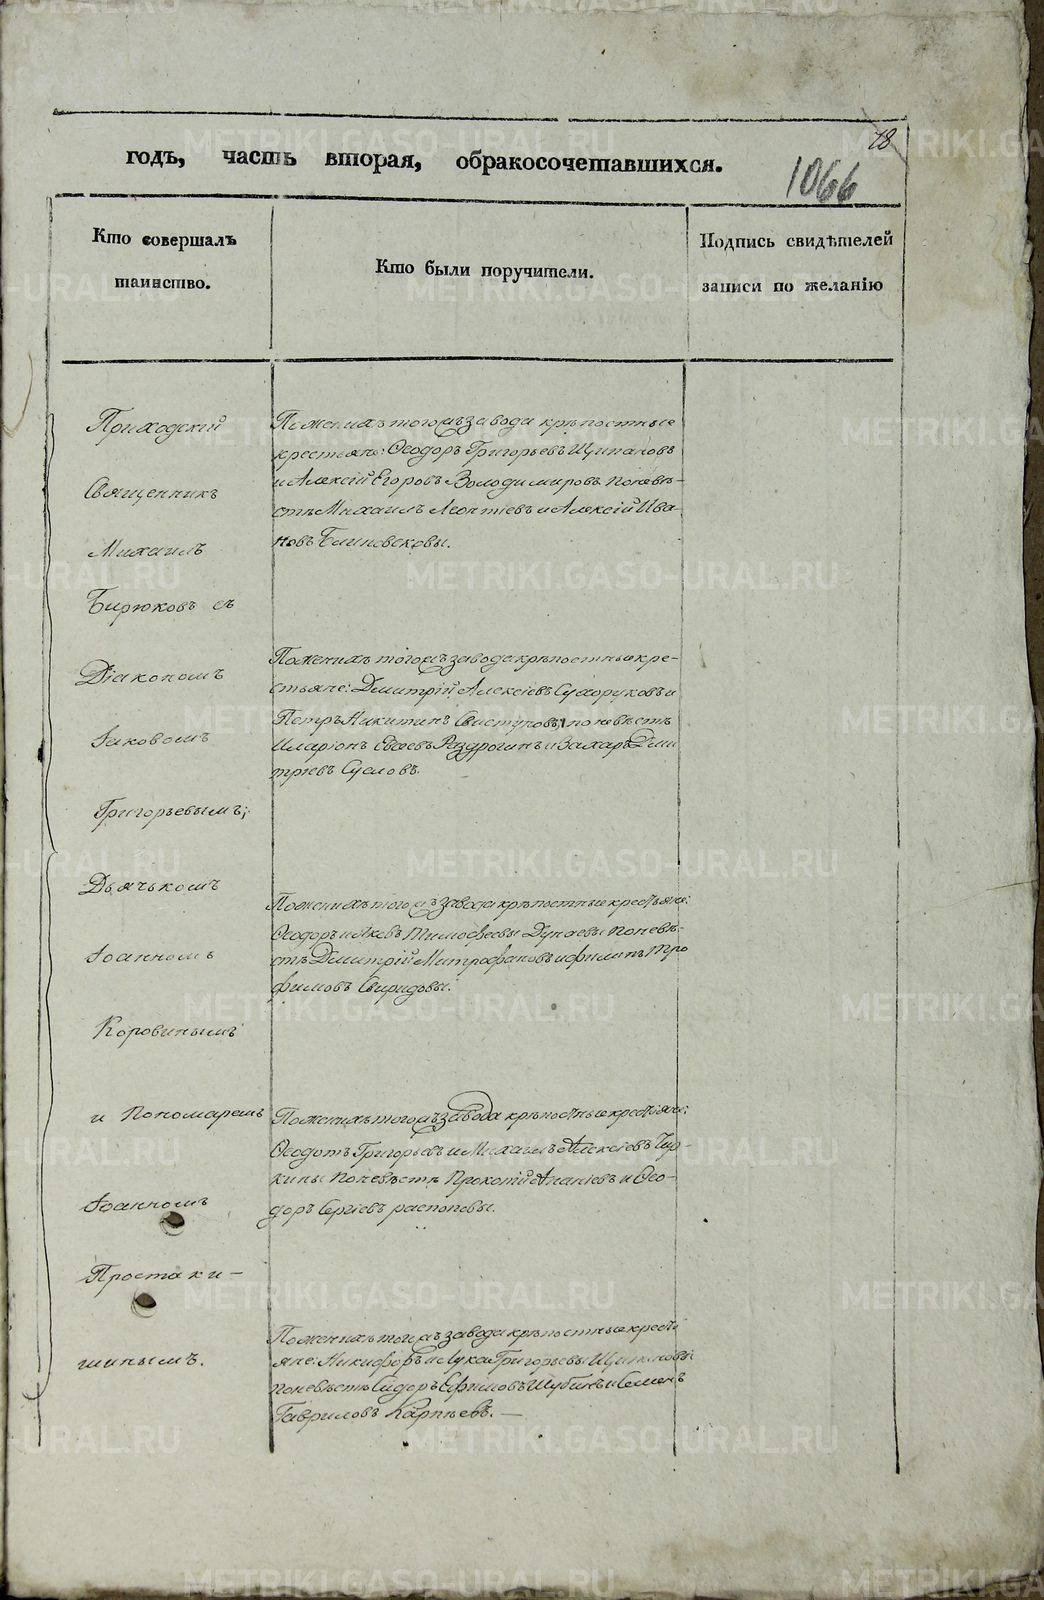 18
годъ, часть вторая, обракосочетавшихся.
1066
Кто совершалъ
таинство.
Кто были поручители.
Подпись свидѣтелей
записи по желанію
Приходскій
Священникъ
Михаилъ
Бирюковъ съ
Діакономъ
Іаковомъ
Григорьевымъ;
Дьячькомъ
Іоанномъ
Коровинымъ
и Пономаремъ
Іоанномъ
Простаки-
шинымъ.
Поженихѣ тогожъ завода крѣпостные
крестьяне: Ѳеодоръ Григорьевъ Щипановъ
и Алексій Егоровъ Володимировъ Поневѣ-
стѣ Михаилъ Леонтіевъ и Алексій Ива-
новъ Блиновсковы.
Поженихѣ тогожъ завода крѣпостные кре-
стьяне: Дмитрій Алексіевъ Сухоруковъ и
Петръ Никитинъ Свистуновъ, поневѣстѣ
Иларіонъ Раздрогинъ и Захаръ Дми
тріевъ Сусловъ.
Поженихѣ тогожъ завода крѣпостные крестьяне:
Ѳеодоръ и Яковъ Тимофеевы Дунаевы поневѣ-
стѣ Дмитрій Митрофановъ и филипъ Тро
фимовъ Свиридовы.
Поженихѣ тогожъ завода крѣпостные крестьяне:
Ѳеодотъ Григорьевъ и Михаилъ Алексіевъ Чур-
кины поневѣстѣ Прокопій Ананіевъ и Ѳео-
доръ Сергіевъ распоповы.
Поженихѣ тогожъ завода крѣпостные кресть
яне: Никифоръ и Лука Григорьевы Щипановы
поневѣстѣ Сидоръ Ефимовъ Шубинъ и Семенъ
Гавриловъ Карпѣевъ. —
METRIKI.GASO-URAL.RU